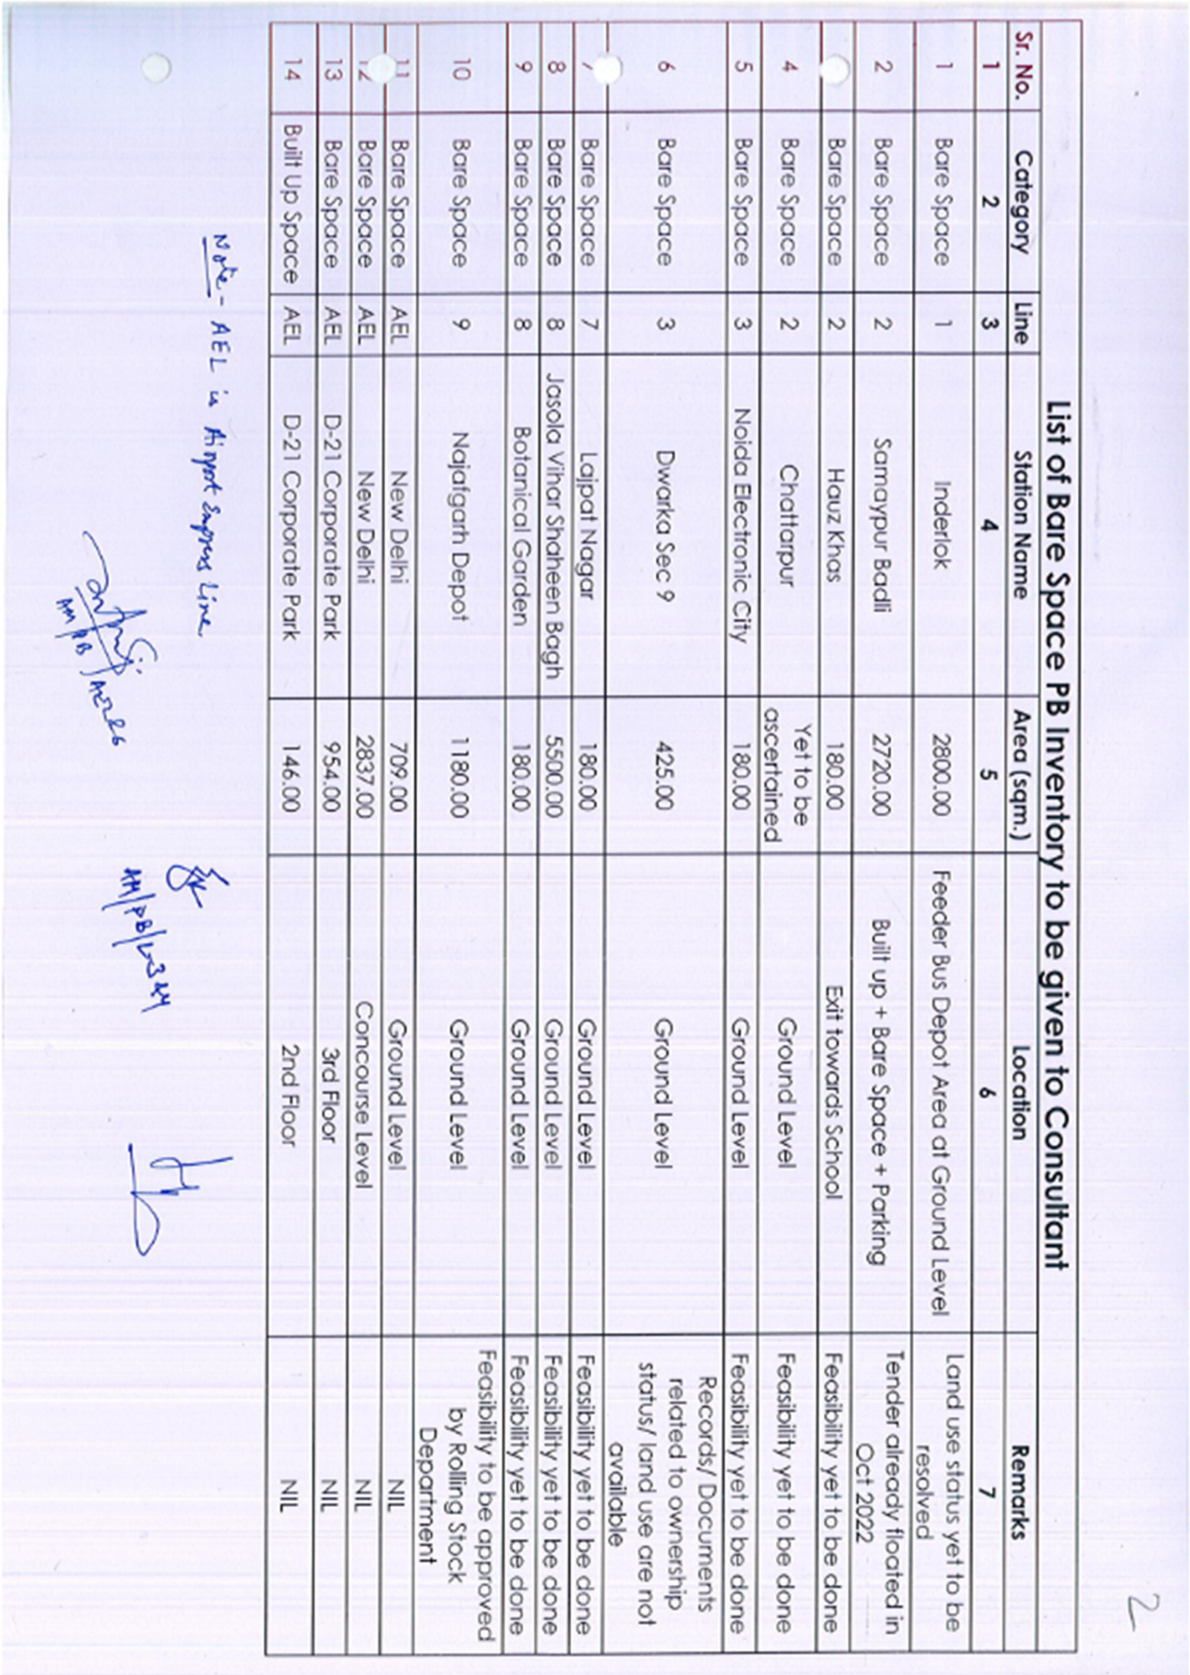 2
List of Bare Space PB Inventory to be given to Consultant
Sr. No. Category Line Station Name Area (sqm.) Location Remarks
1 2 3 4 5 6 7
1 Bare Space 1 Inderlok 2800.00 Feeder Bus Depot Area at Ground Level Land use status yet to be
resolved
2 Bare Space 2 Samaypur Badli 2720.00 Built up + Bare Space + Parking Tender already floated in
Oct 2022
Bare Space 2 Hauz Khas 180.00 Exit towards School Feasibility yet to be done
4 Bare Space 2 Chattarpur Yet to be
ascertained Ground Level Feasibility yet to be done
5 Bare Space 3 Noida Electronic City 180.00 Ground Level Feasibility yet to be done
6 Bare Space 3 Dwarka Sec 9 425.00 Ground Level Records/ Documents
related to ownership
status/ land use are not
available
7 Bare Space 7 Lajpat Nagar 180.00 Ground Level Feasibility yet to be done
8 Bare Space 8 Jasola Vihar Shaheen Bagh 5500.00 Ground Level Feasibility yet to be done
9 Bare Space 8 Botanical Garden 180.00 Ground Level Feasibility yet to be done
10 Bare Space 9 Najafgarh Depot 1180.00 Ground Level Feasibility to be approved
by Rolling Stock
Department
11 Bare Space AEL New Delhi 709.00 Ground Level NIL
12 Bare Space AEL New Delhi 2837.00 Concourse Level NIL
13 Bare Space AEL D-21 Corporate Park 954.00 3rd Floor NIL
14 Built Up Space AEL D-21 Corporate Park 146.00 2nd Floor NIL
Note - AEL is Airport Express Line
AM/PB/L-3&4